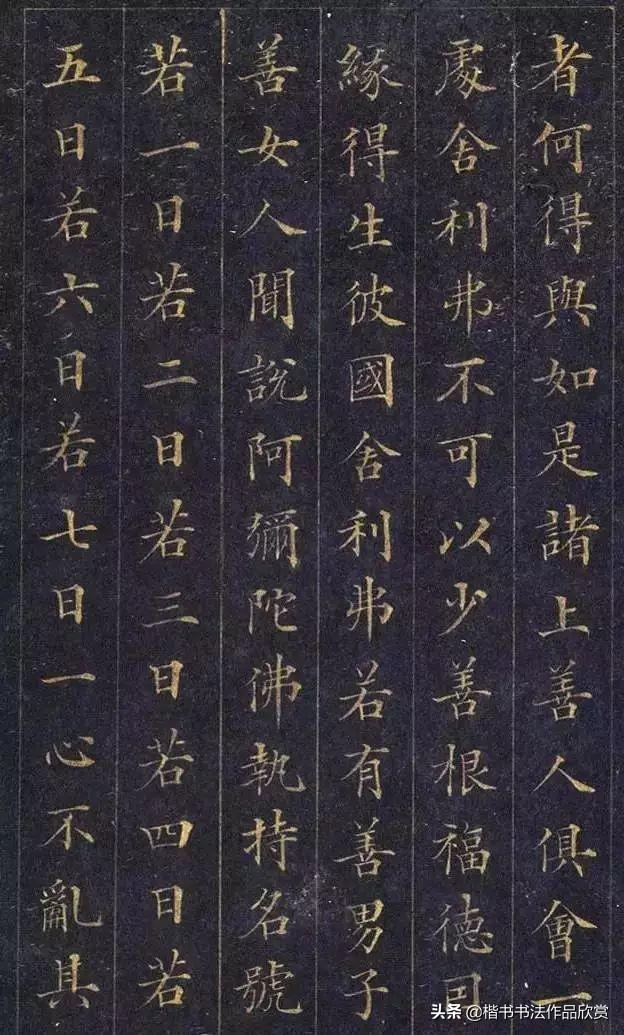 者何得與如是諸上善人俱會一
處舍利弗不可以少善根福德因
緣得生彼國舍利弗若有善男子
善女人聞說阿彌陀佛執持名號
若一日若二日若三日若四日若
五日若六日若七日一心不亂其
头条 @楷书书法作品欣赏